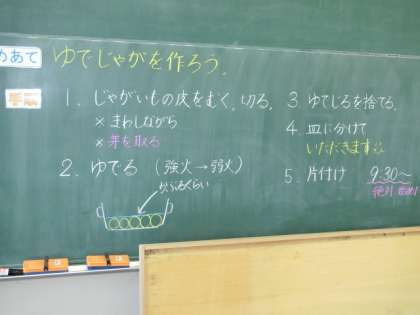 めあて
ゆでじゃがを作ろう。
手順
1. じゃがいもの皮をむく、切る。
×まわしながら
×芽を取る
2. ゆでる (強火→弱火)
3. ゆでじるを捨てる。
4. 皿に分けて
いただきます
5. 片付け 9:30〜